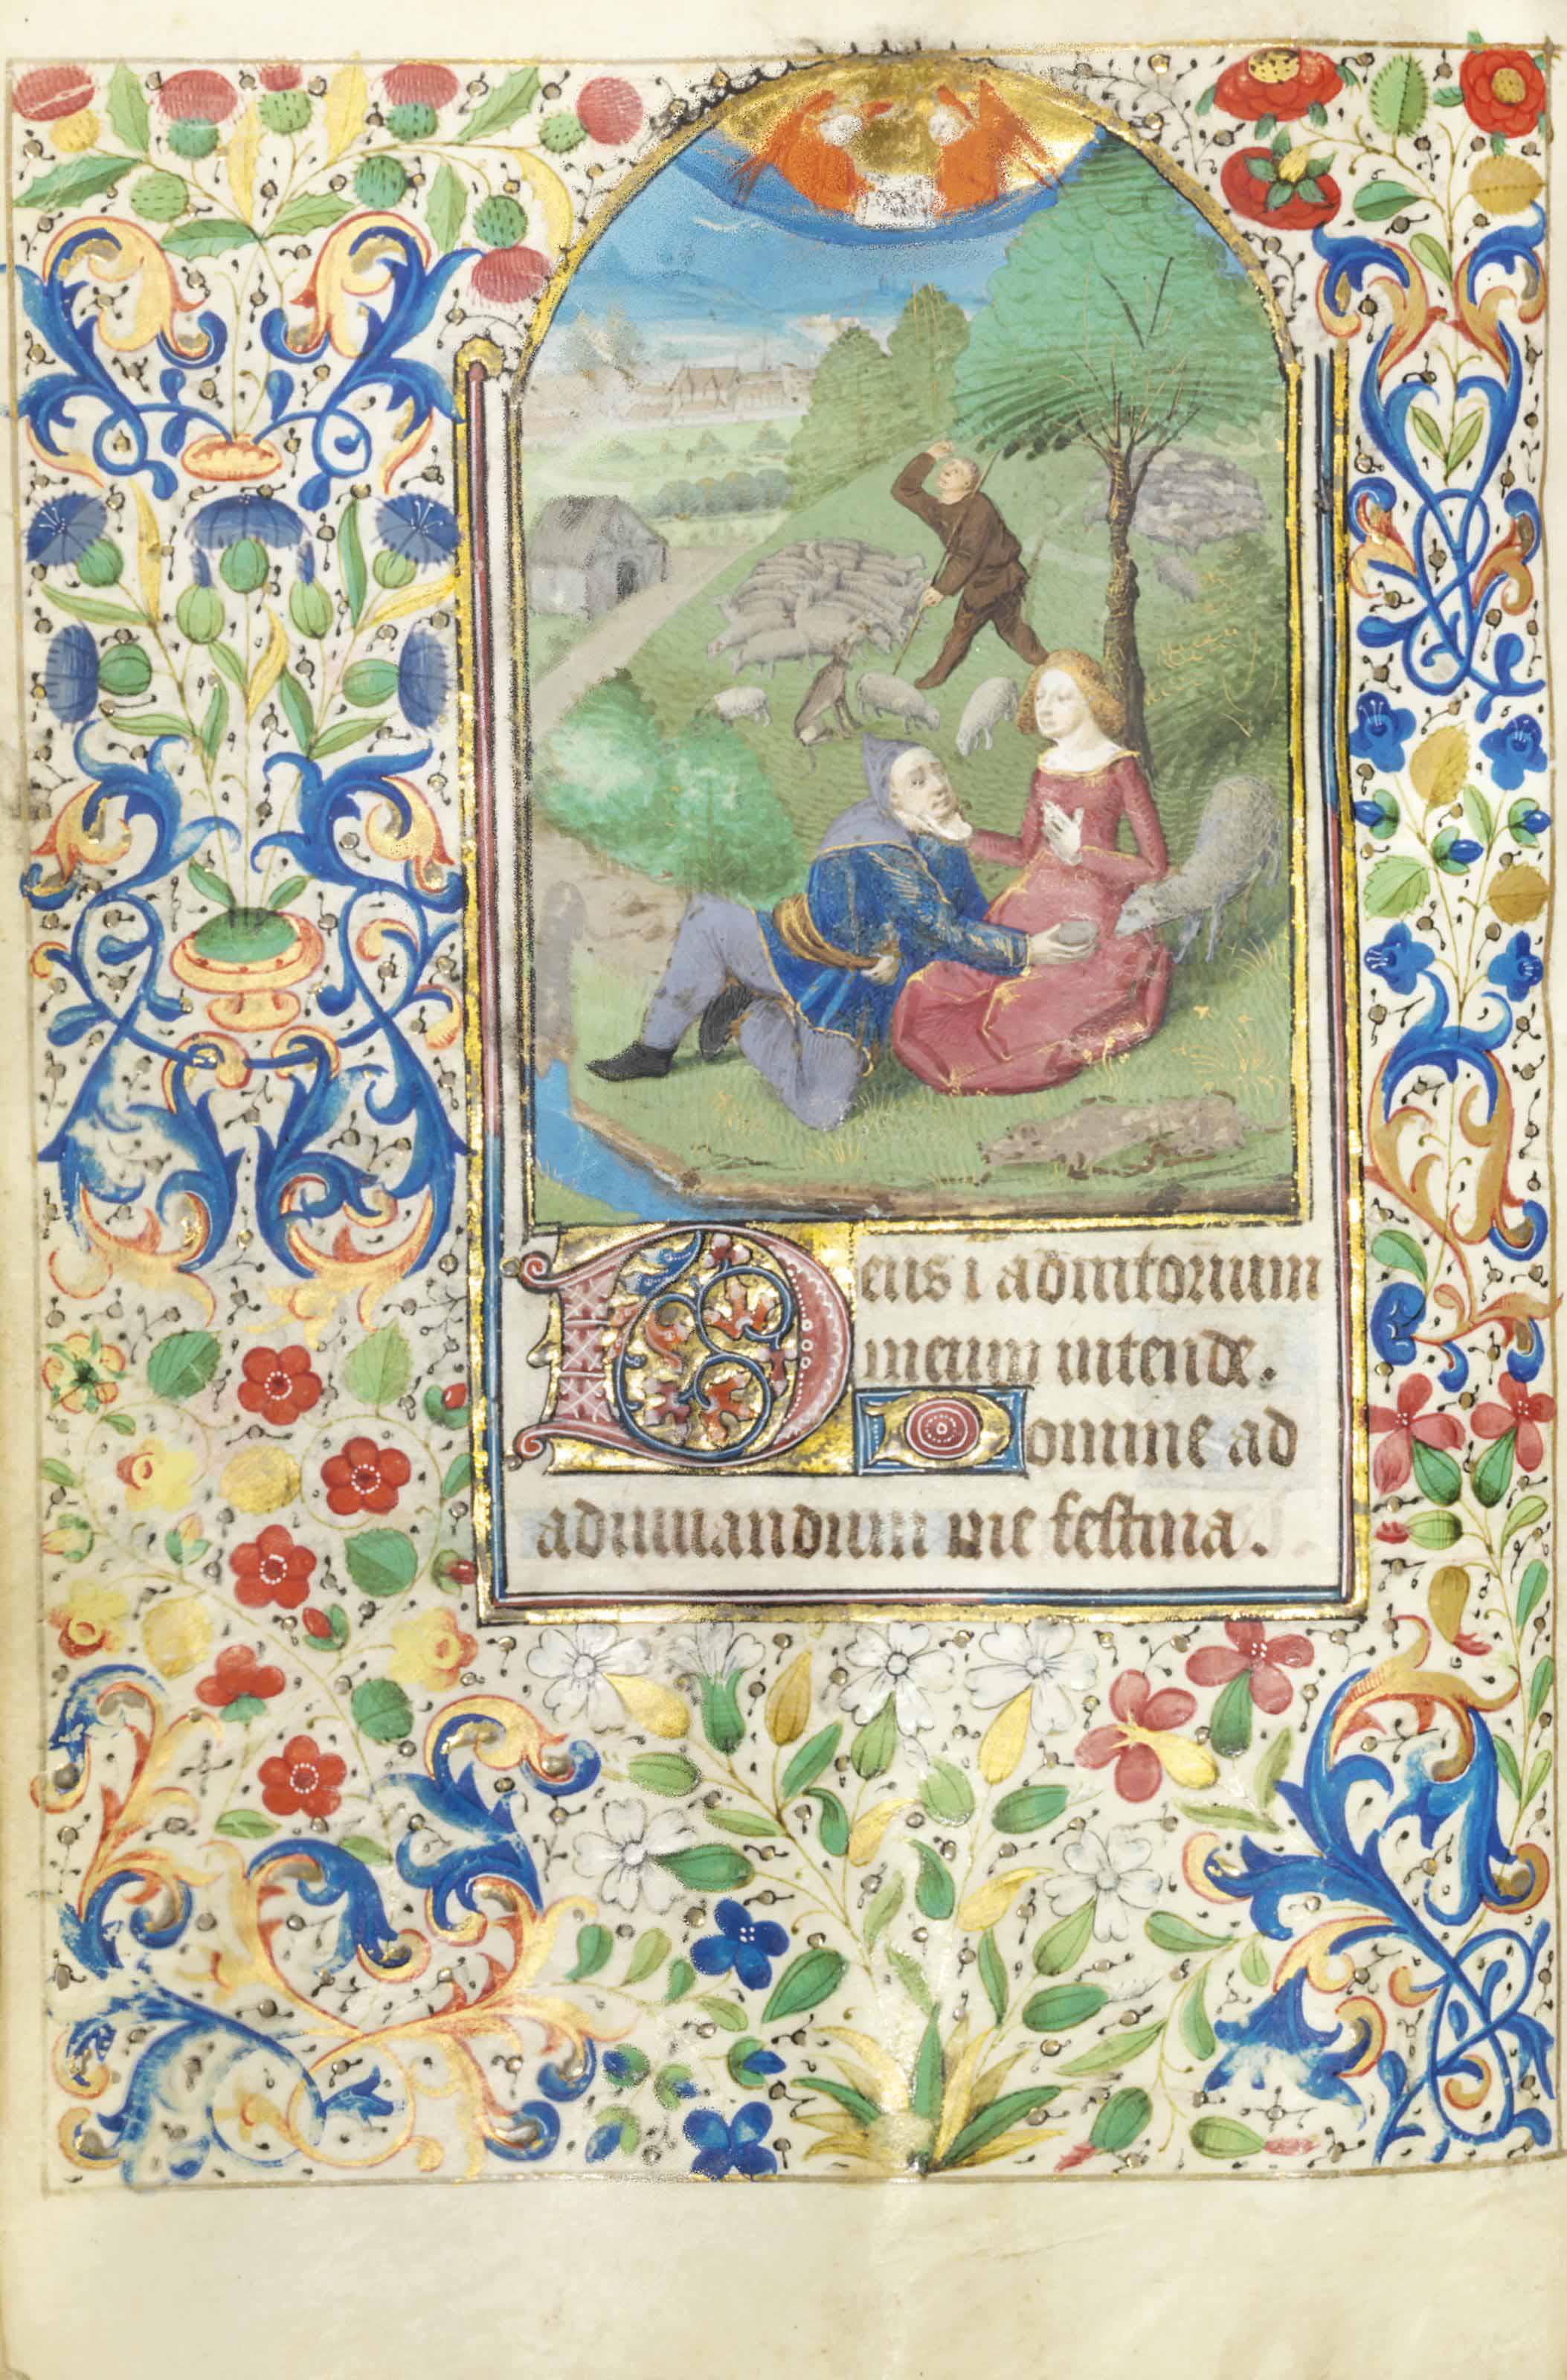 Deus i adiutorium
meum intende.
Domine ad
adiuuandum me festina.